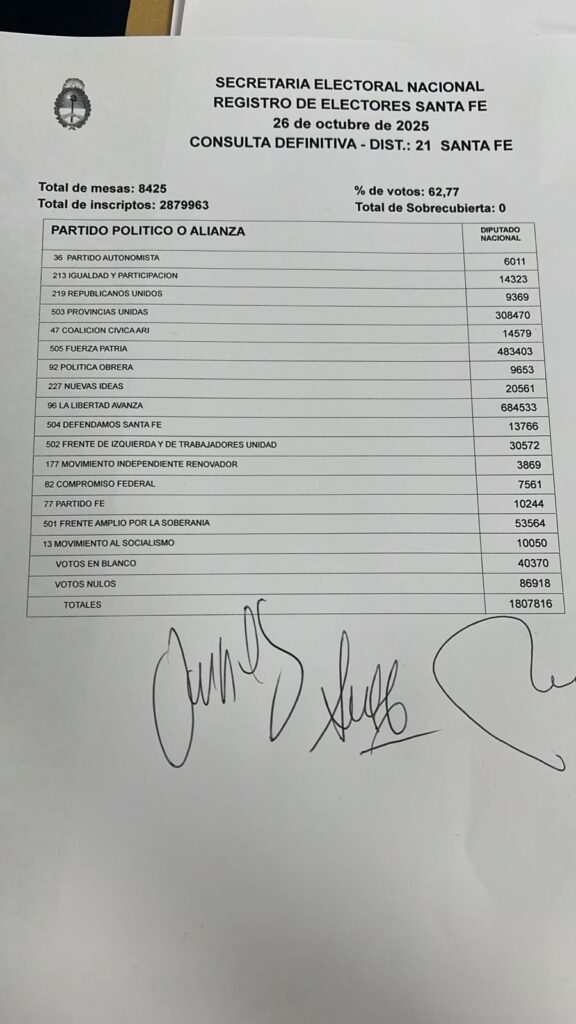 SECRETARIA ELECTORAL NACIONAL
REGISTRO DE ELECTORES SANTA FE
26 de octubre de 2025
CONSULTA DEFINITIVA - DIST.: 21 SANTA FE
Total de mesas: 8425 % de votos: 62,77
Total de inscriptos: 2879963 Total de Sobrecubierta: 0
PARTIDO POLITICO O ALIANZA DIPUTADO NACIONAL
36 PARTIDO AUTONOMISTA 6011
213 IGUALDAD Y PARTICIPACION 14323
219 REPUBLICANOS UNIDOS 9369
503 PROVINCIAS UNIDAS 308470
47 COALICION CIVICA ARI 14579
505 FUERZA PATRIA 483403
92 POLITICA OBRERA 9653
227 NUEVAS IDEAS 20561
96 LA LIBERTAD AVANZA 684533
504 DEFENDAMOS SANTA FE 13766
502 FRENTE DE IZQUIERDA Y DE TRABAJADORES UNIDAD 30572
177 MOVIMIENTO INDEPENDIENTE RENOVADOR 3869
82 COMPROMISO FEDERAL 7561
77 PARTIDO FE 10244
501 FRENTE AMPLIO POR LA SOBERANIA 53564
13 MOVIMIENTO AL SOCIALISMO 10050
VOTOS EN BLANCO 40370
VOTOS NULOS 86918
TOTALES 1807816